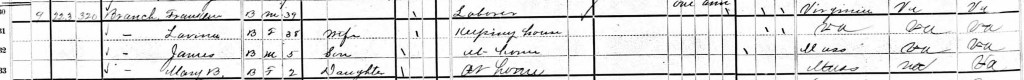 30 9 223 320 Branch B M 39 Laborer one arm Virginia Va Va
31 " - Lavina B F 38 Wife Keeping house Va Va Va
32 " - James B M 5 Son At home Mass Va Va
33 " - Mary B. B F 2 Daughter At home Mass Va Va